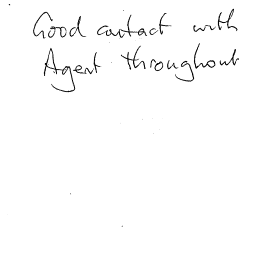 Good contact with
Agent throughout